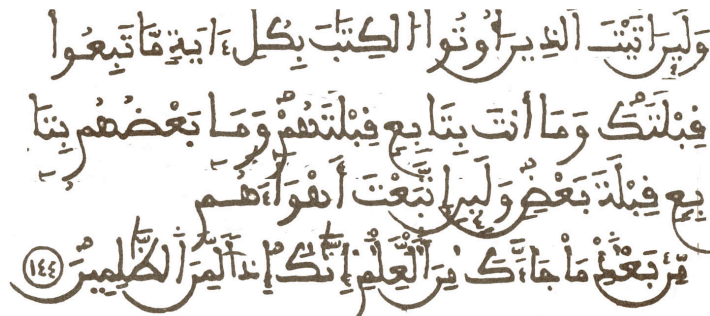 وَلَئِنَ اَتَيْتَ اَلذِينَ أُوتُوا۟ اُلْكِتَٰبَ بِكُلِّ ءَايَةٖ مَّا تَبِعُوا۟
قِبْلَتَكَۖ وَمَا أَنتَ بِتَابِعٖ قِبْلَتَهُمْۖ وَمَا بَعْضُهُم بِتَا
بِعٖ قِبْلَةَ بَعْضٖۖ وَلَئِنِ اِتَّبَعْتَ أَهْوَآءَهُم
مِّنۢ بَعْدِ مَا جَآءَكَ مِنَ اَلْعِلْمِ إِنَّكَ إِذاٗ لَّمِنَ اَلظَّٰلِمِينَۖ ١٤٤